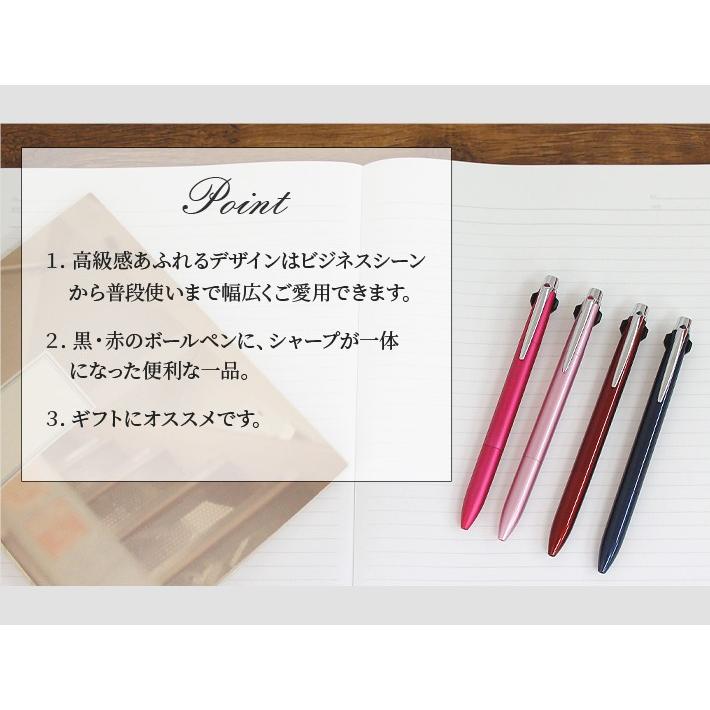 Point
1. 高級感あふれるデザインはビジネスシーン
から普段使いまで幅広くご愛用できます。
2. 黒・赤のボールペンに、シャープが一体
になった便利な一品。
3. ギフトにオススメです。